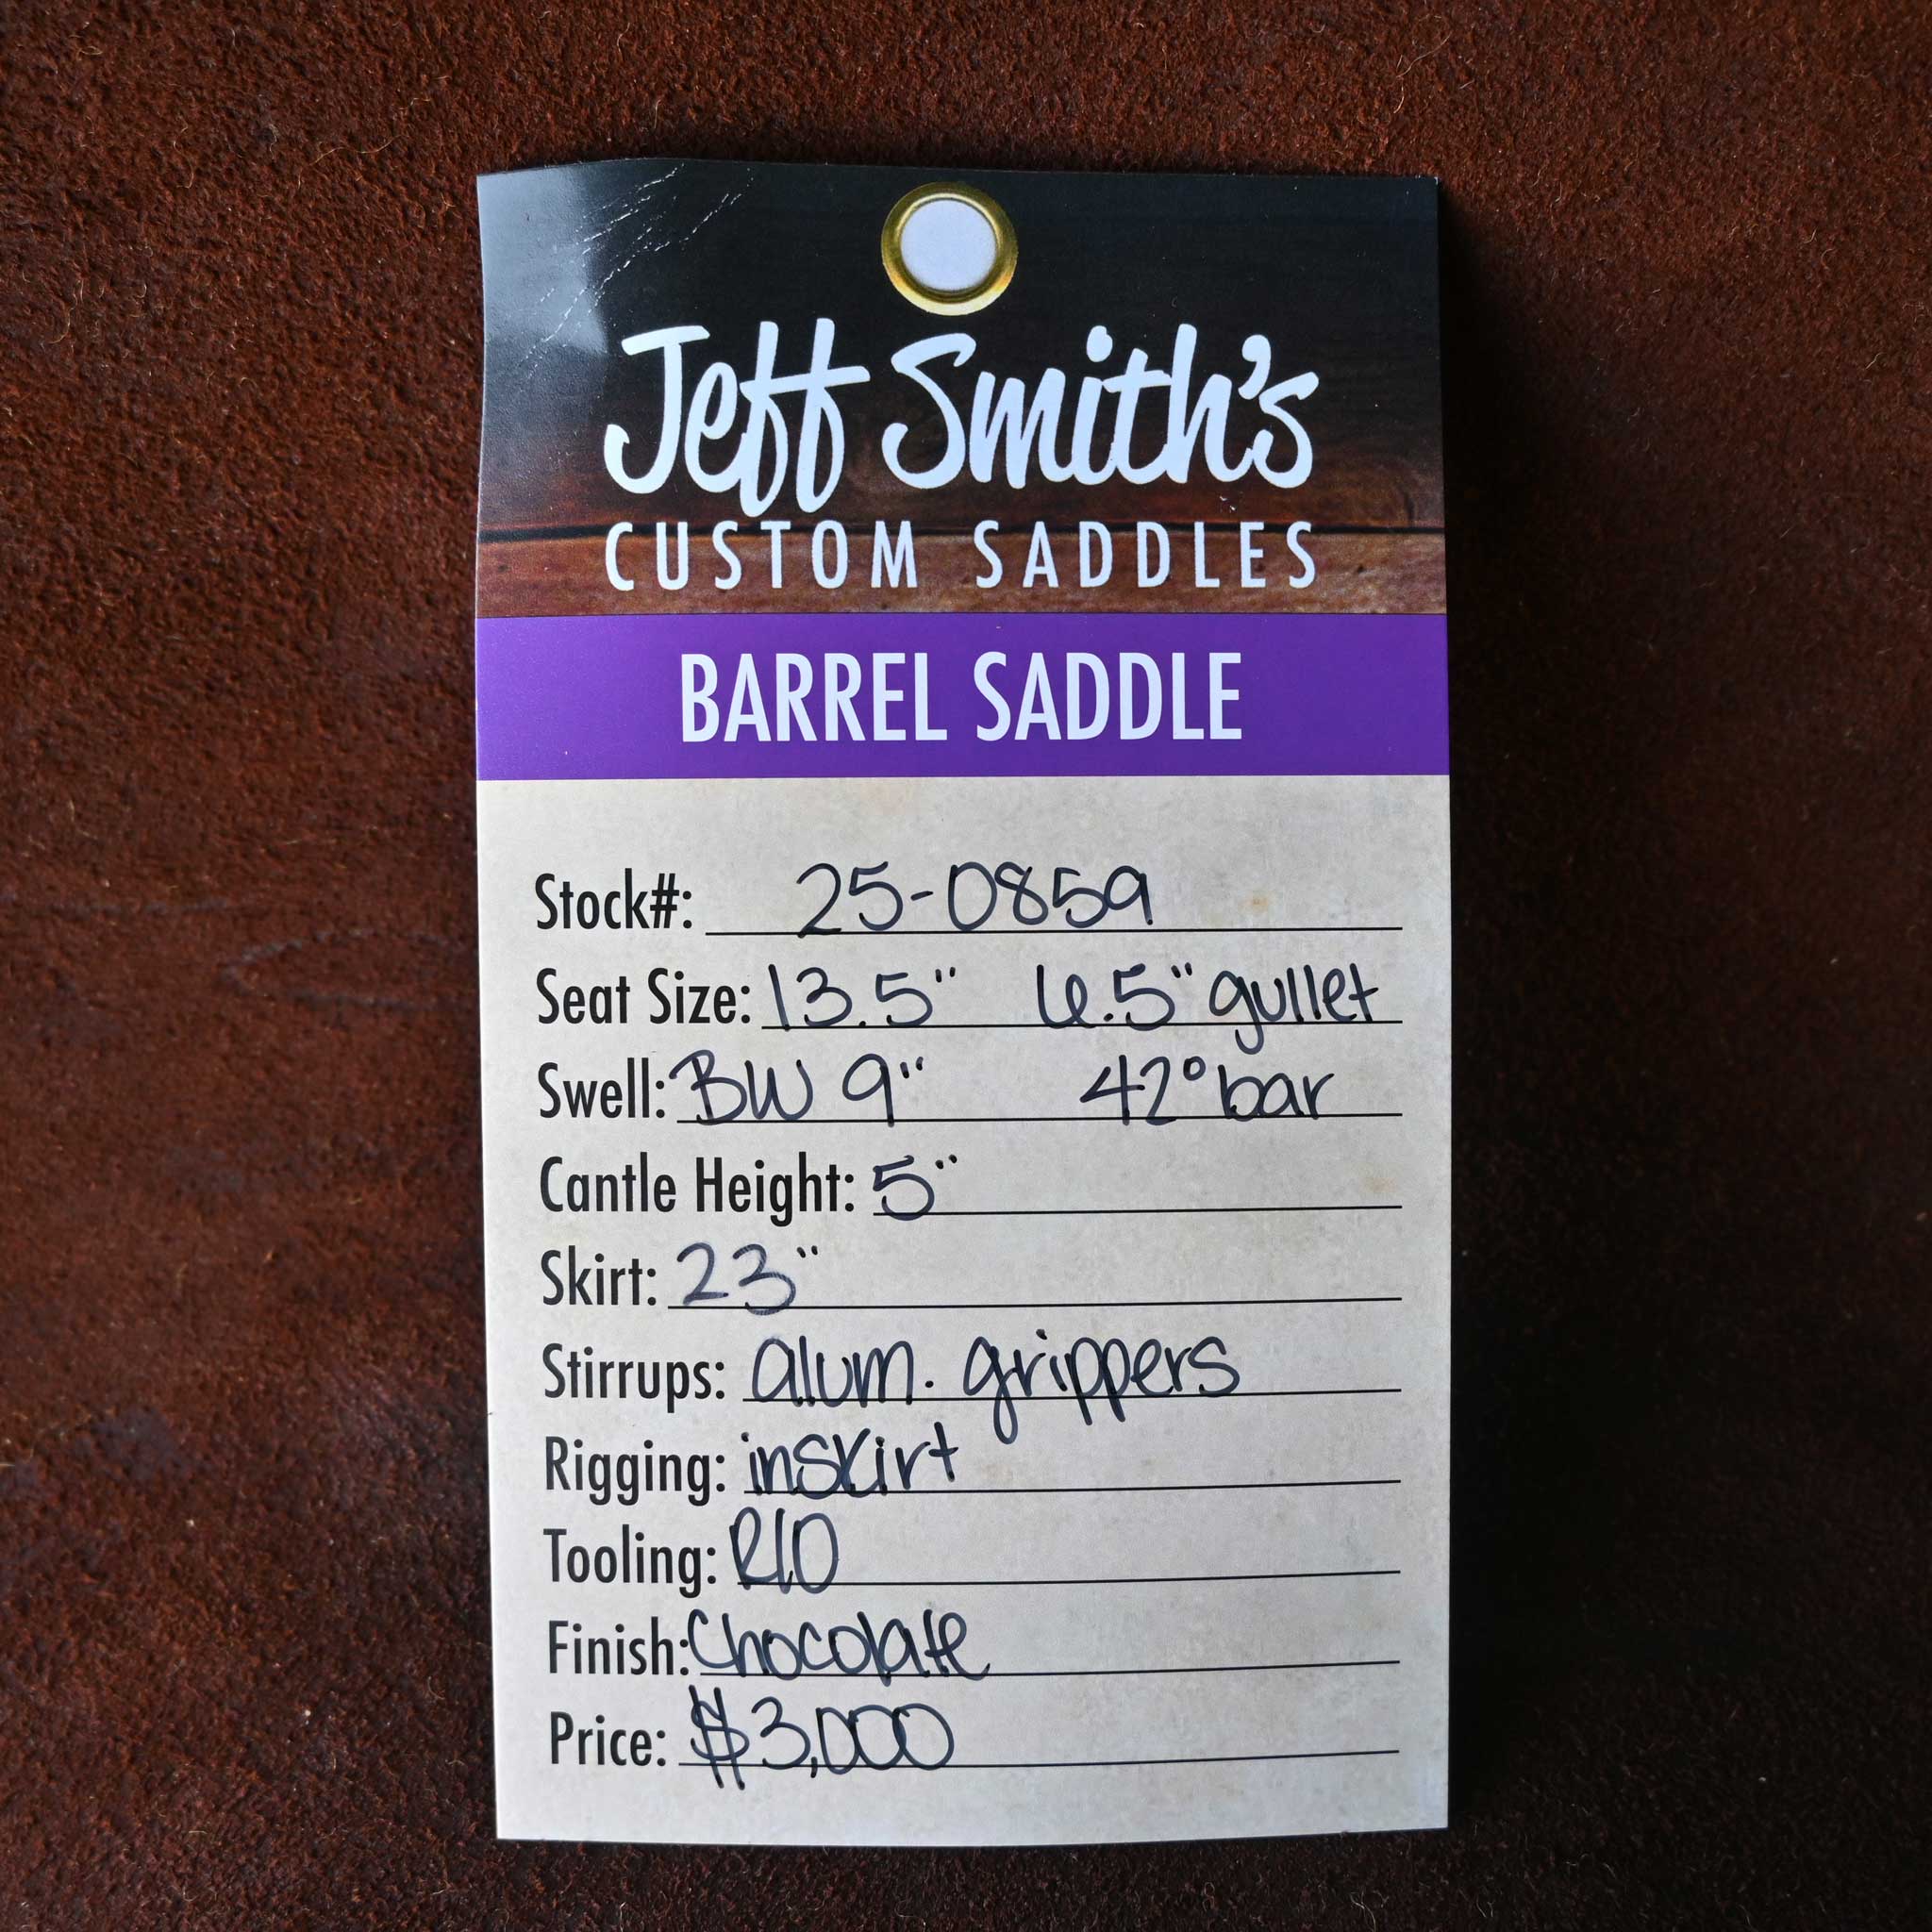 Jeff Smith's
CUSTOM SADDLES
BARREL SADDLE
Stock#: 25-0859
Seat Size: 13.5" 6.5" gullet
Swell: BW 9" 42° bar
Cantle Height: 5"
Skirt: 23"
Stirrups: alum. grippers
Rigging: inskirt
Tooling: RIO
Finish: Chocolate
Price: $3,000